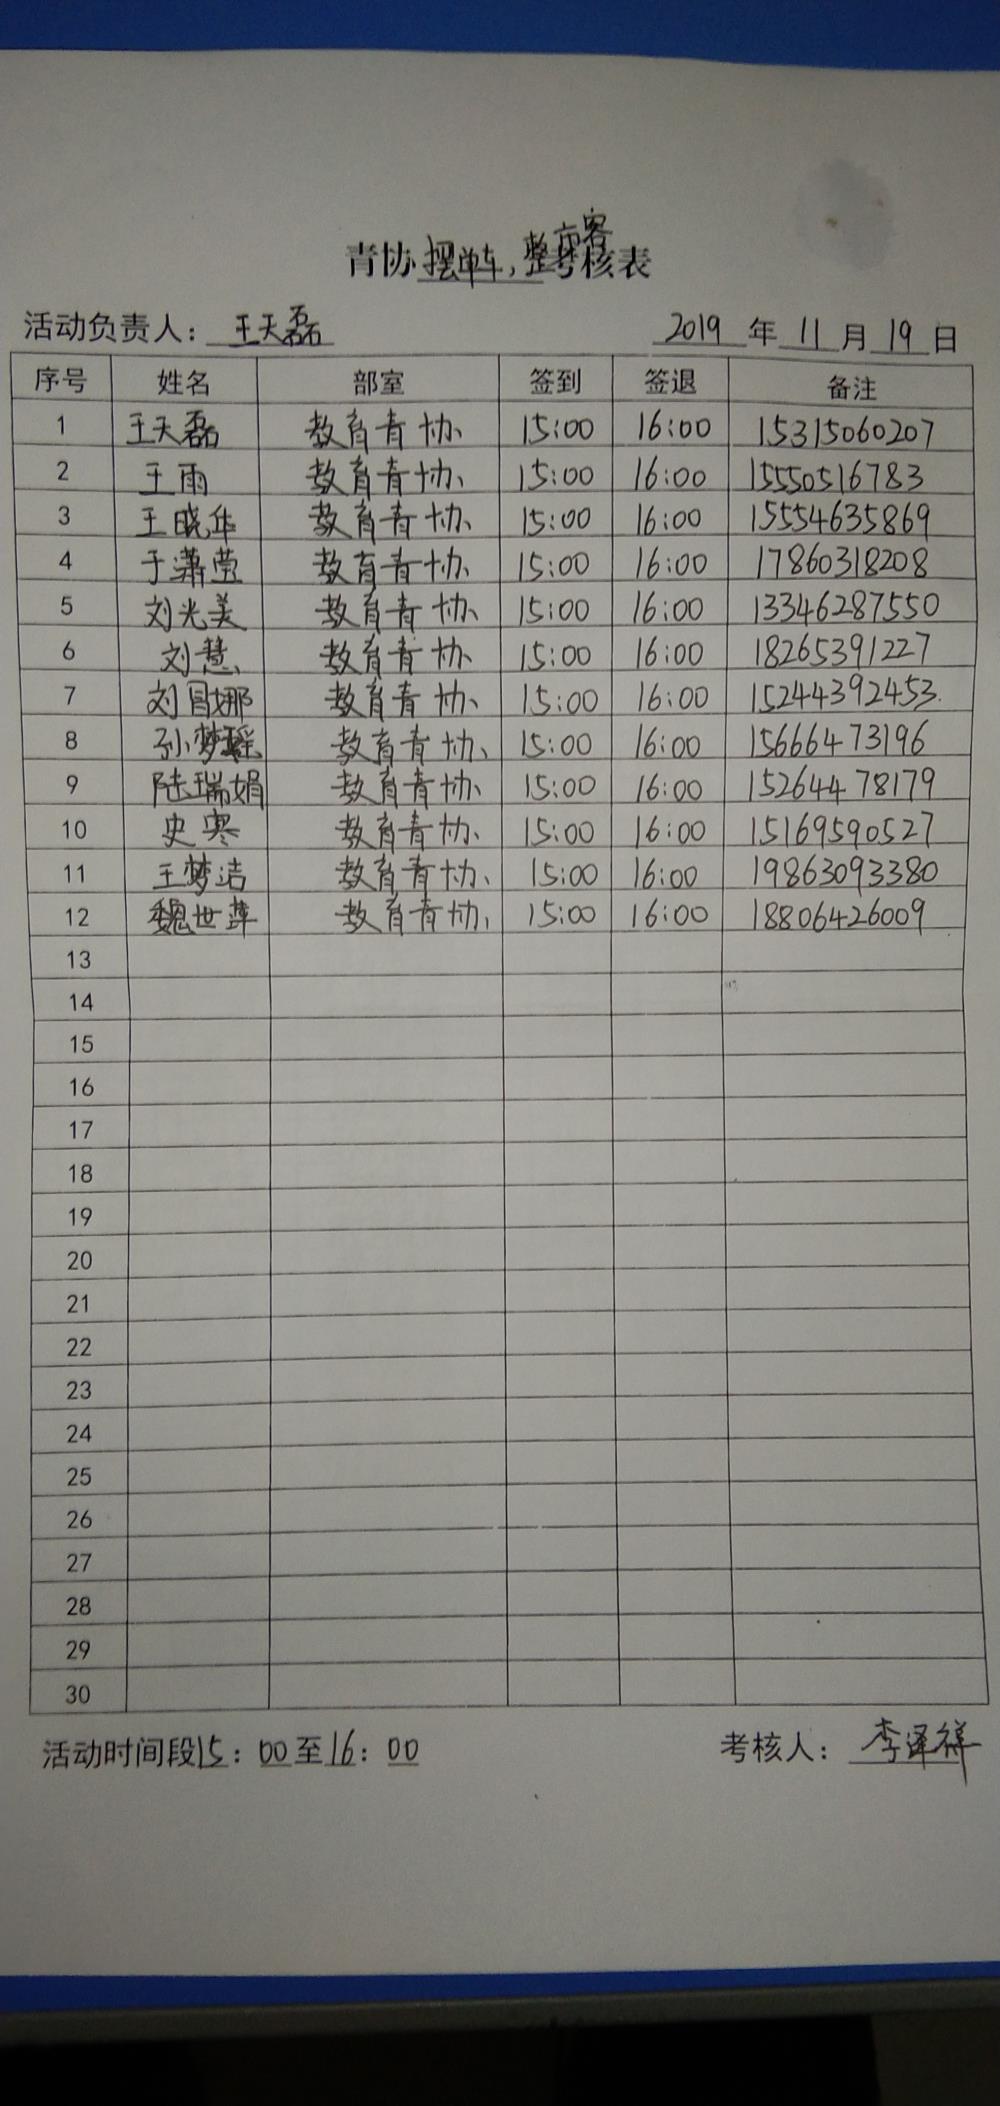 青协 摆单车，整市容 考核表
活动负责人： 王天磊 2019 年 11 月 19 日
序号 姓名 部室 签到 签退 备注
1 王天磊 教育青协 15:00 16:00 15315060207
2 王雨 教育青协 15:00 16:00 15550516783
3 王晓华 教育青协 15:00 16:00 15554635869
4 于潇莹 教育青协 15:00 16:00 17860318208
5 刘光美 教育青协 15:00 16:00 13346287550
6 刘慧 教育青协 15:00 16:00 18265391227
7 刘娜 教育青协 15:00 16:00 15244392453
8 孙梦瑶 教育青协 15:00 16:00 15666473196
9 陆瑞娟 教育青协 15:00 16:00 15264478179
10 史寒 教育青协 15:00 16:00 15169590527
11 王梦洁 教育青协 15:00 16:00 19863093380
12 魏世萍 教育青协 15:00 16:00 18806426009
13
14
15
16
17
18
19
20
21
22
23
24
25
26
27
28
29
30
活动时间段15：00至16：00 考核人： 李泽祥